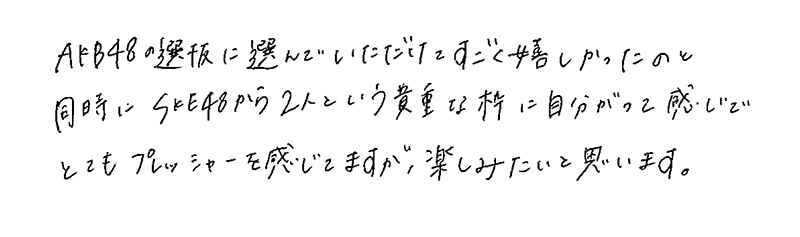 AKB48の選抜に選んでいただけてすごく嬉しかったのと
同時にSKE48から2人という貴重な枠に自分がって感じで
とてもプレッシャーを感じてますが、楽しみたいと思います。